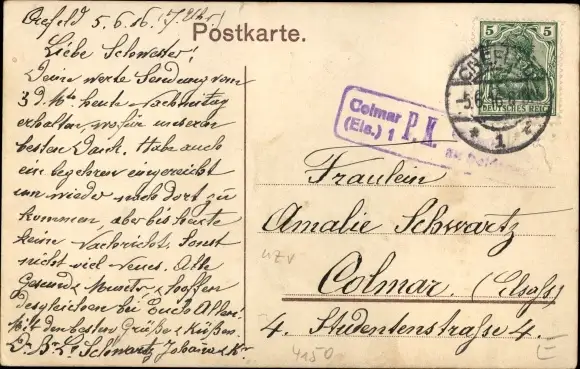 Crefeld 5.6.16. (7 Uhr.)
Postkarte.
Liebe Schwester!
Deine werte Sendung vom
3 d. Mts heute Nachmittag
erhalten, wofür unseren
besten Dank. Habe auch
ein begehren eingereicht
um wieder nach dort zu
kommen aber bis heute
keine Nachricht. Sonst
nicht viel Neues. Alle
Gesund & Munter & hoffen
desgleichen bei Euch Allen.
Mit den besten Grüße & Küßen.
Schwartz
5
DEUTSCHES REICH
CREFELD
-5.6.16
* 1
Colmar
(Els.) 1
P.K.
Fräulein
Amalie Schwartz
Colmar. (Elsaß)
4. Studentenstraße 4.
4150